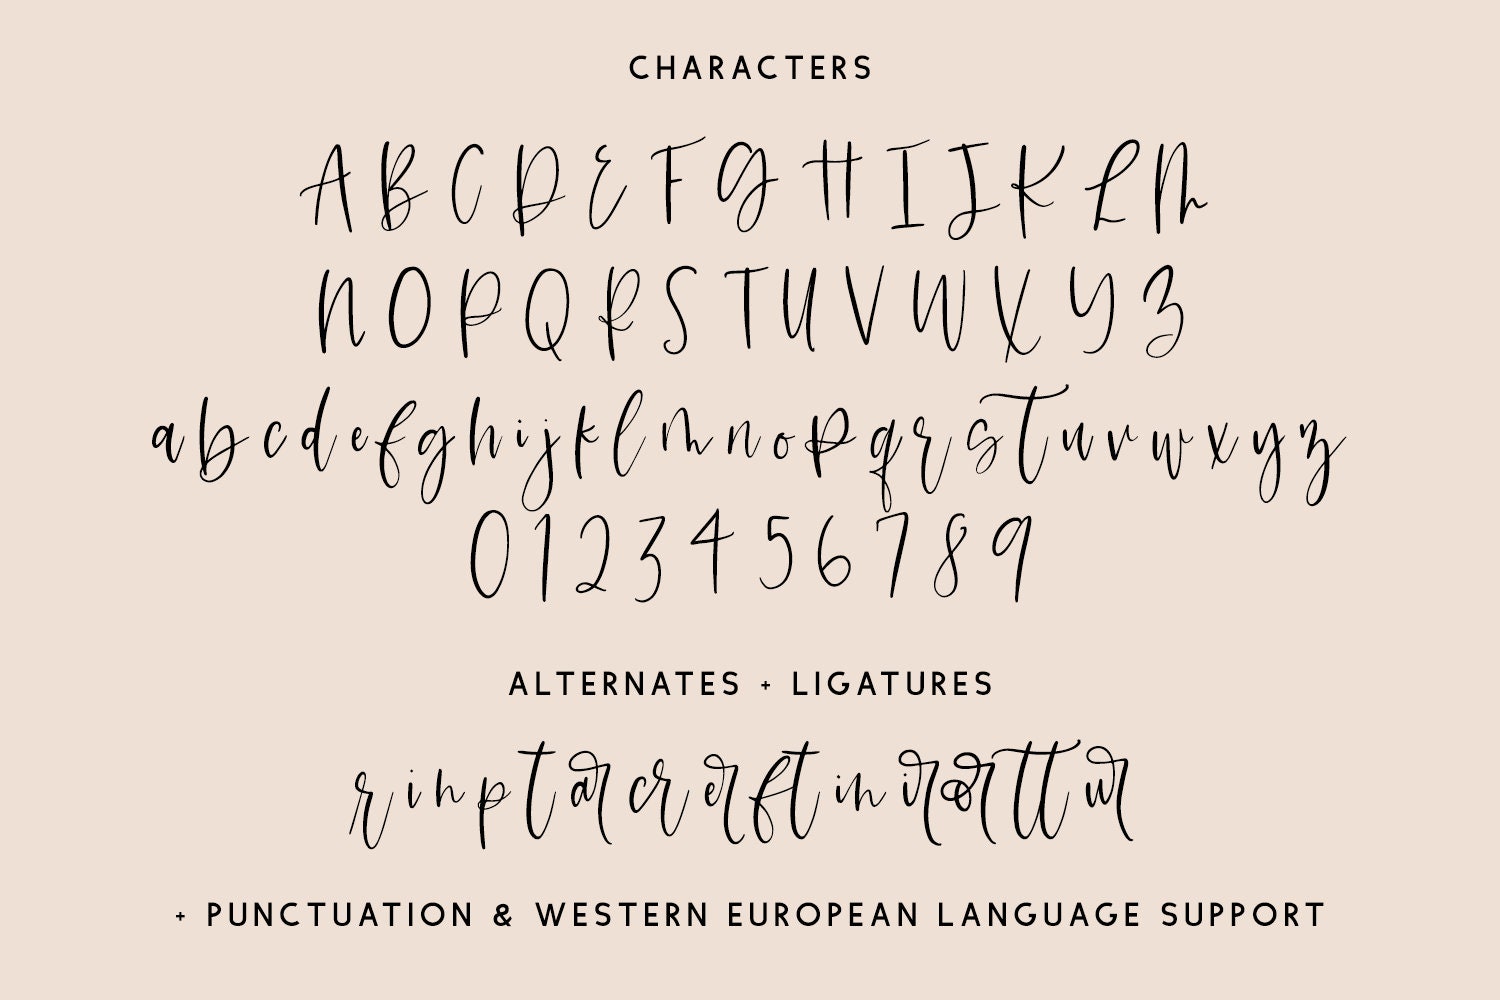 CHARACTERS
A B C D E F G H I J K L M
N O P Q R S T U V W X Y Z
a b c d e f g h i j k l m n o p q r s t u v w x y z
0 1 2 3 4 5 6 7 8 9
ALTERNATES + LIGATURES
r i n p t ar cr er ft in ir or tt ur
+ PUNCTUATION & WESTERN EUROPEAN LANGUAGE SUPPORT